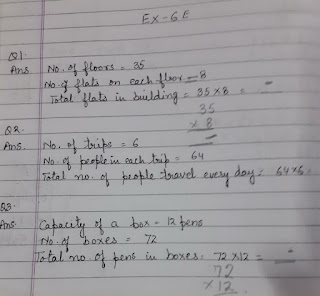 EX-6E
Q1
Ans No. of floors = 35
No. of flats on each floor = 8
Total flats in building = 35×8 =
35
× 8
Q2.
Ans. No. of trips = 6
No. of people in each trip = 64
Total no. of people travel every day = 64×6
Q3.
Ans Capacity of a box = 12 pens
No. of boxes = 72
Total no. of pens in boxes = 72×12 =
72
×12